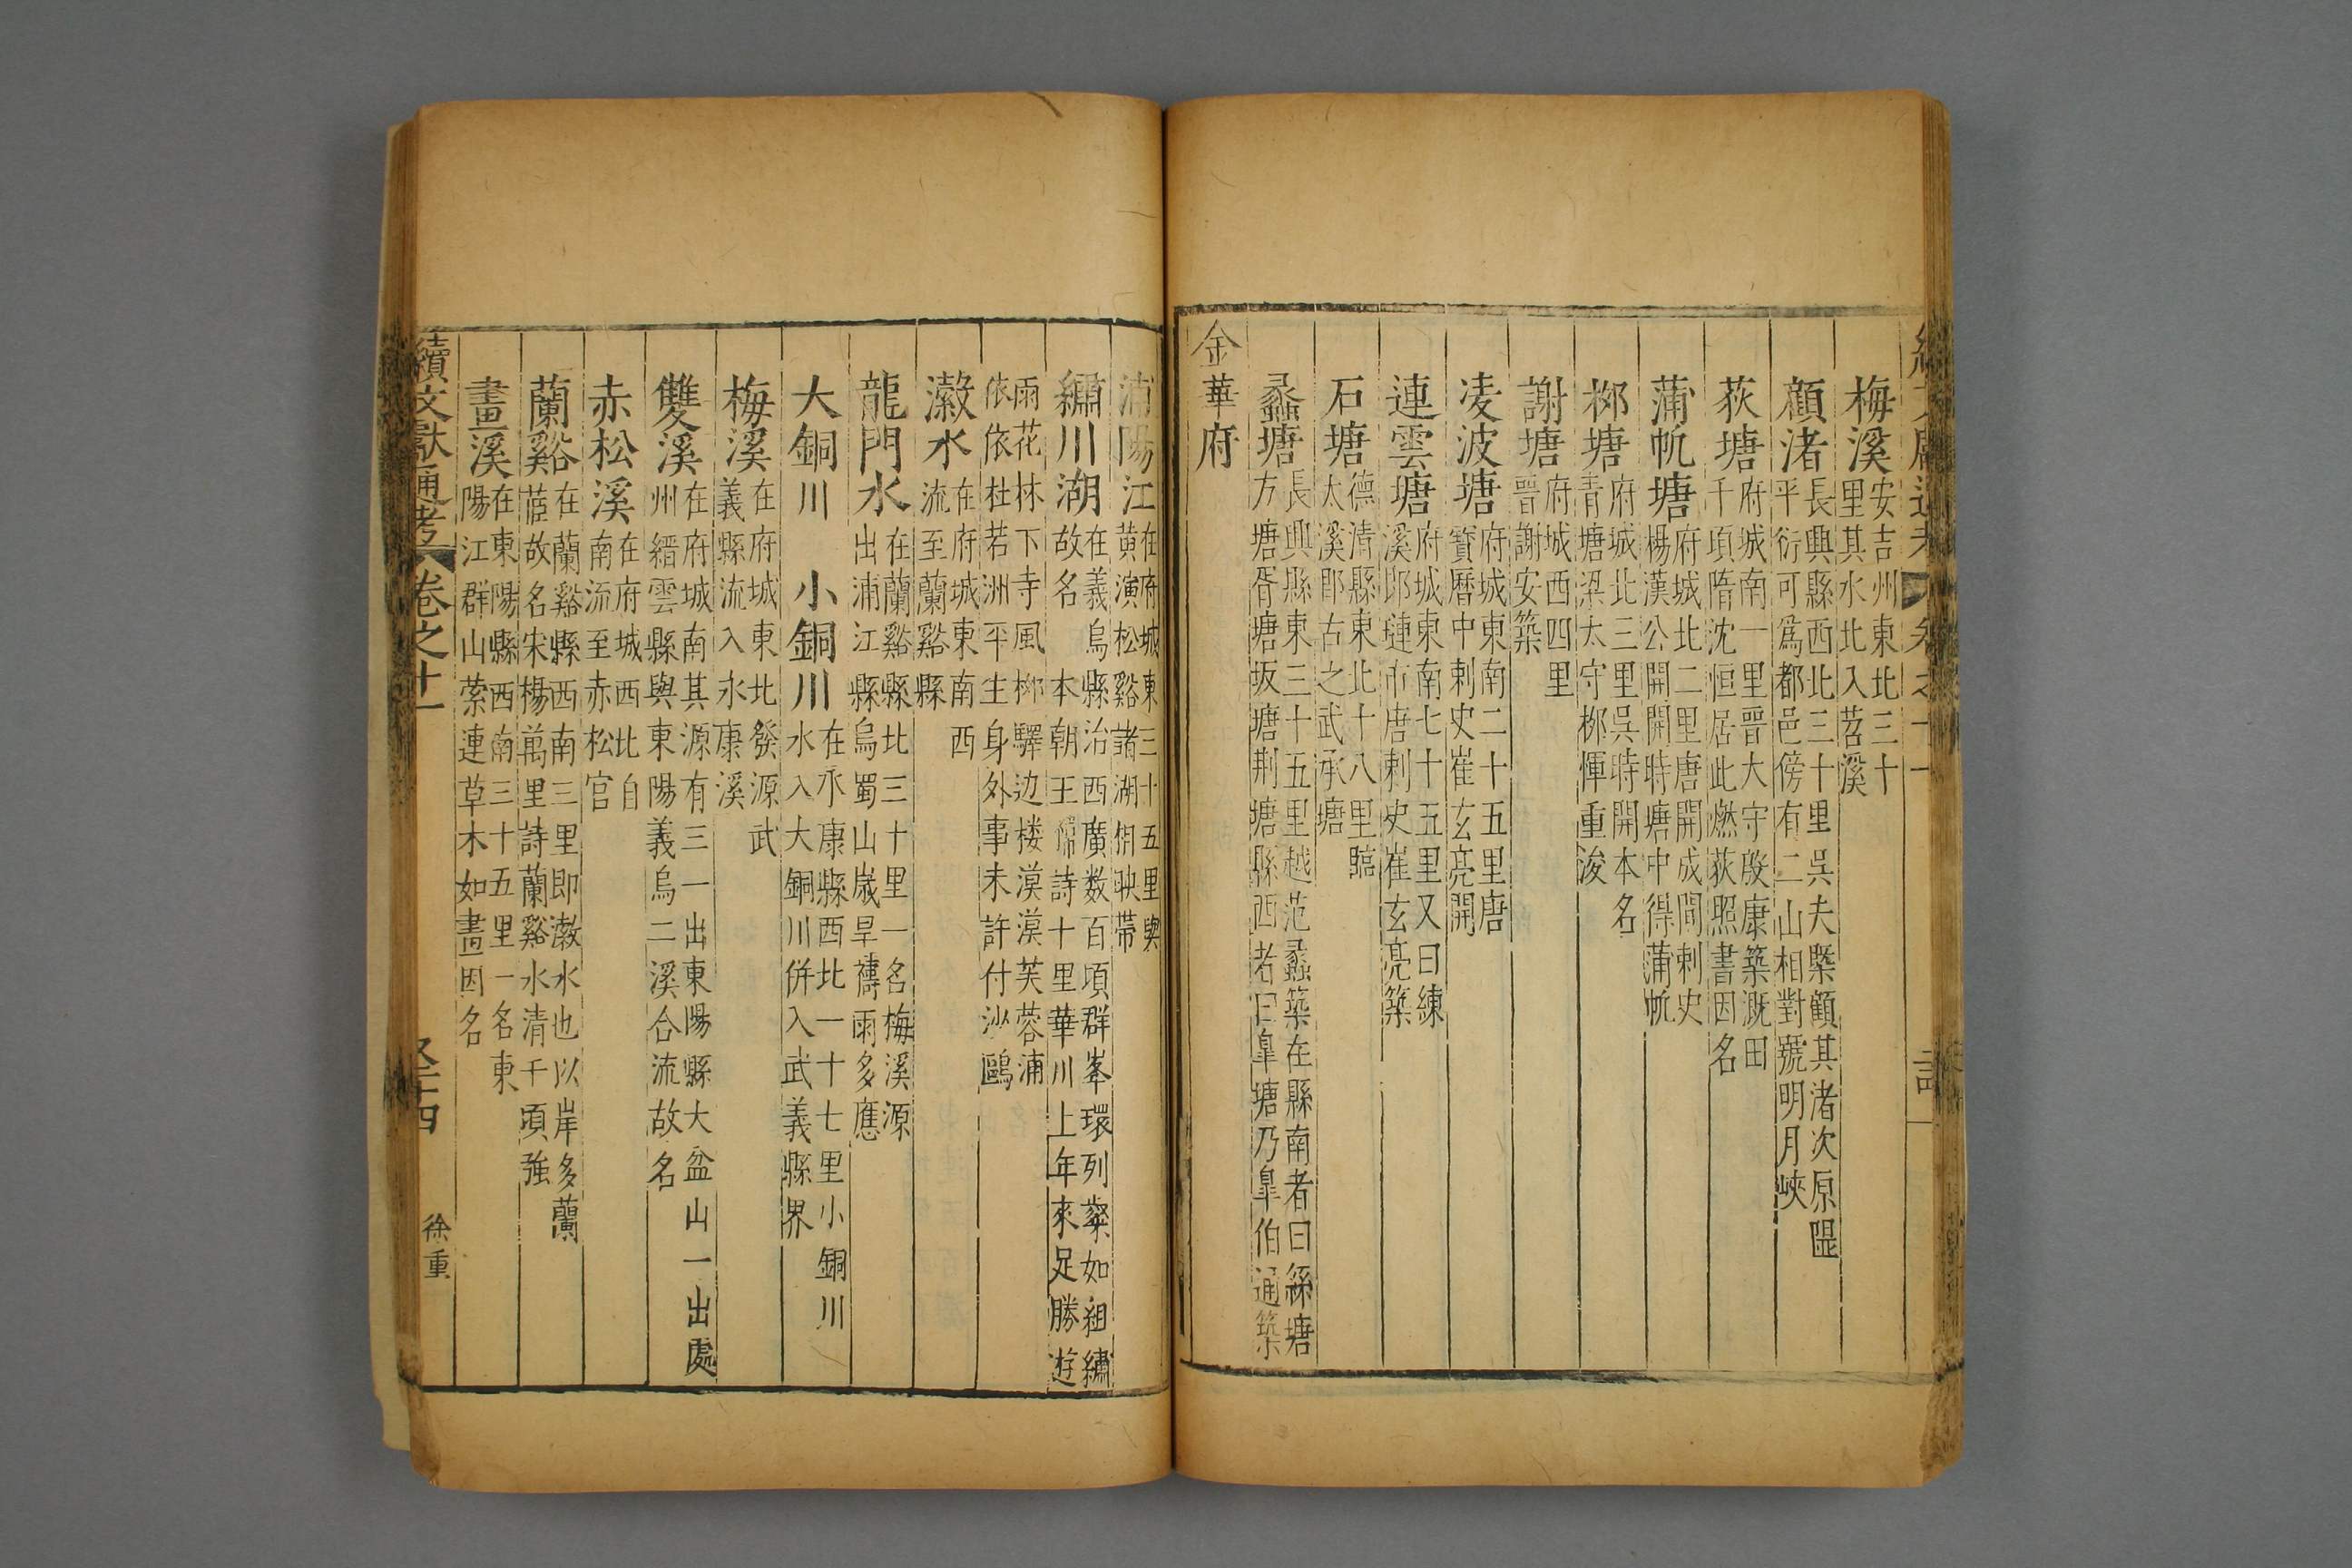 梅溪安吉州東北三十里其水北入苕溪
顧渚長興縣西北三十里吳夫槩顧其渚次原隰平衍可爲都邑傍有二山相對號明月峽
荻塘府城南一里晋大守殷康築溉田千頃隋沈恒居此燃荻照書因名
蒲帆塘府城北二里唐開成間刺史楊漢公開開時塘中得蒲帆
柳塘府城北三里吳時開本名青塘梁太守柳惲重浚
謝塘府城西四里晋謝安築
凌波塘府城東南二十五里唐寳曆中刺史崔玄亮開
連雲塘府城東南七十五里又曰練溪郎璉市唐刺史崔玄亮築
石塘德清縣東北十八里臨太溪郎古之武承塘
蠡塘長興縣東三十五里越范蠡築在縣南者曰孫塘方塘胥塘坂塘荆塘縣西者曰臯塘乃臯伯通築
金華府
浦陽江在府城東三十五里與黄演松谿諸湖相映帶
繡川湖在義烏縣治西廣数百頃群峯環列粲如組繡故名 本朝王褘詩十里華川上年來足勝遊
雨花林下寺風柳驛边楼漠漠芙蓉浦依依杜若洲平生身外事未許付沙鷗
瀫水在府城東南 西流至蘭谿縣
龍門水在蘭谿縣北三十里一名梅溪源出浦江縣烏蜀山歲旱禱雨多應
大銅川 小銅川在永康縣西北一十七里小銅川水入大銅川併入武義縣界
梅溪在府城東北發源武義縣流入水康溪
雙溪在府城南其源有三一出東陽縣大盆山一出處州縉雲縣與東陽義烏二溪合流故名
赤松溪在府城西北自南流至赤松宫
蘭谿在蘭谿縣西南三里即瀫水也以岸多蘭茝故名宋楊萬里詩蘭谿水清千頃强
畫溪在東陽縣西南三十五里一名東陽江群山縈連草木如畫因名
續文獻通考 卷之十一
徐重